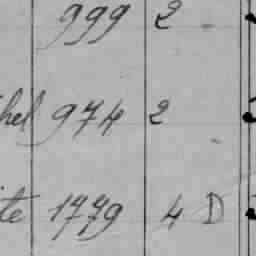 999 2
hel 974 2
ite 1779 4 D